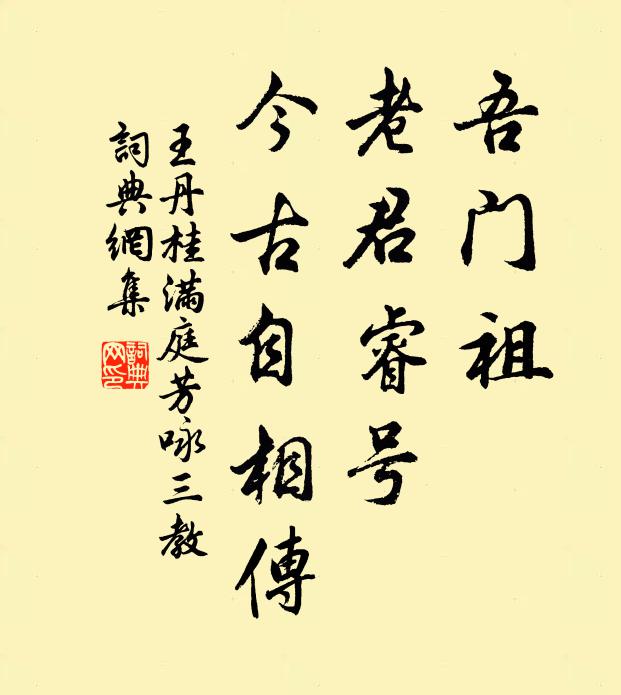 吾门祖
老君睿号
今古自相傳
王丹桂满庭芳咏三教
詞典網集
詞典网印